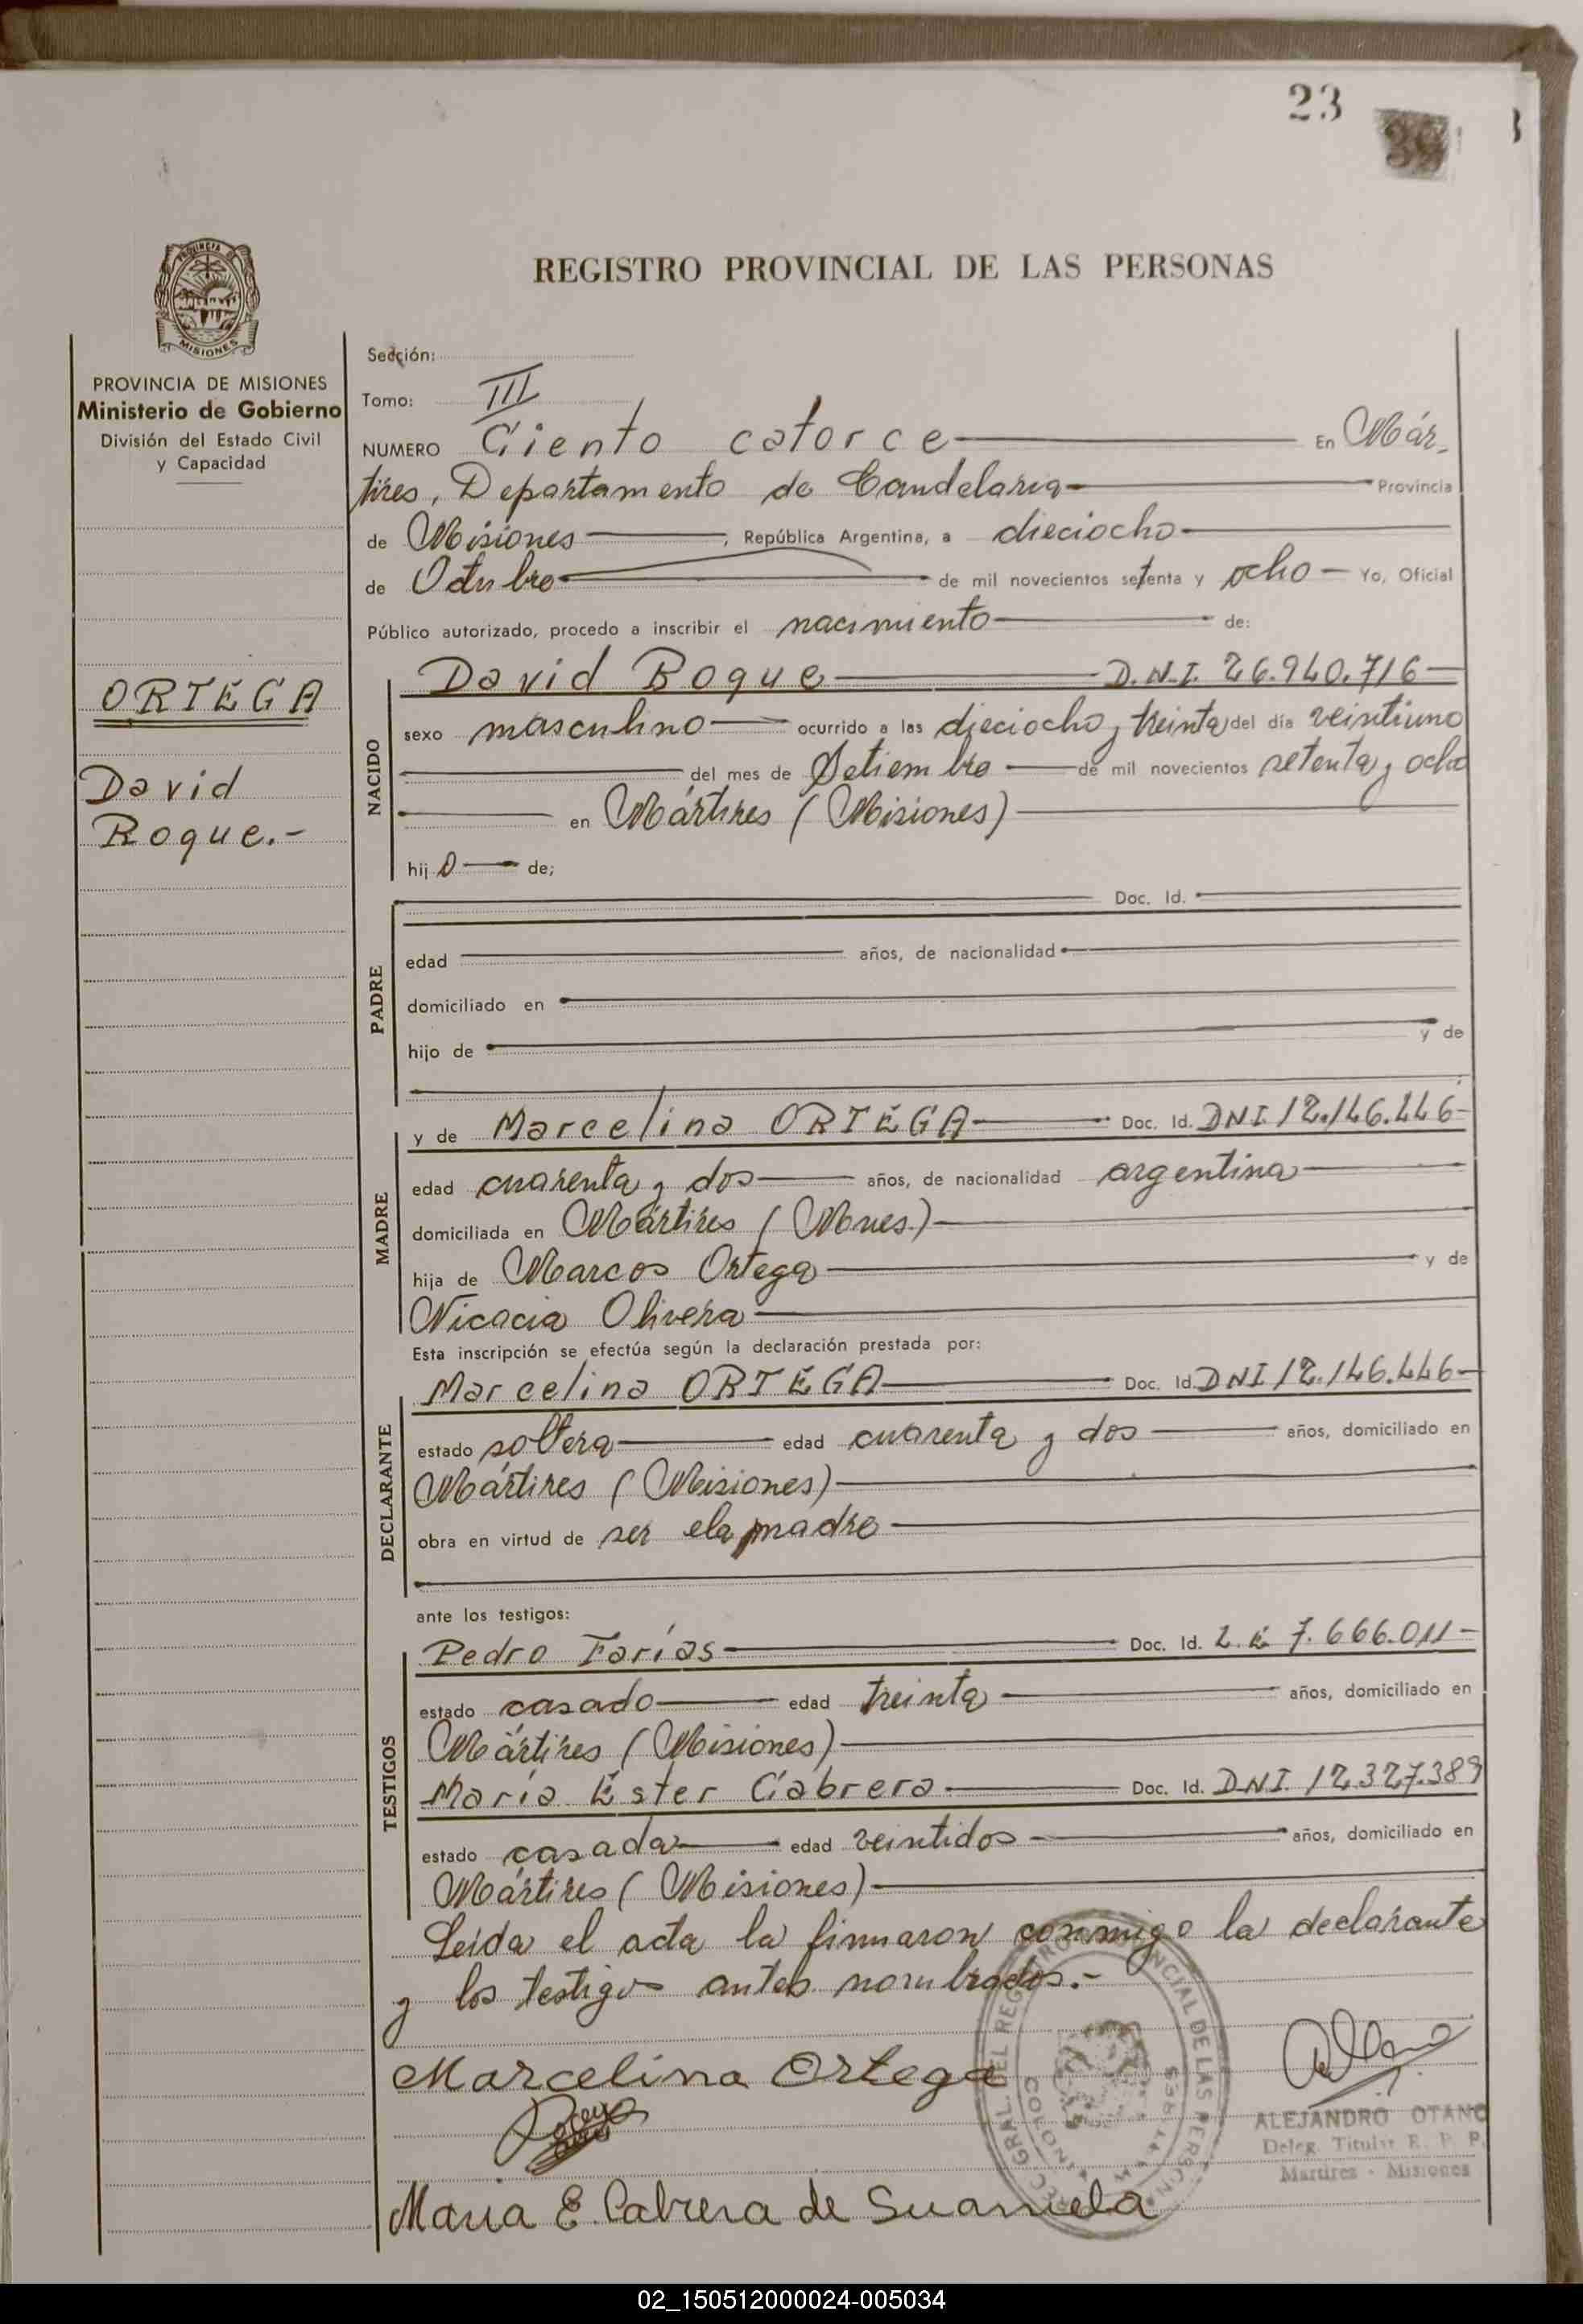 23
REGISTRO PROVINCIAL DE LAS PERSONAS
PROVINCIA
MISIONES
PROVINCIA DE MISIONES
Ministerio de Gobierno
División del Estado Civil
y Capacidad
ORTEGA
David
Roque.-
Sección:
Tomo: III
NUMERO Ciento catorce En Már-
tires, Departamento de Candelaria Provincia
de Misiones , República Argentina, a dieciocho
de Octubre de mil novecientos setenta y ocho Yo, Oficial
Público autorizado, procedo a inscribir el nacimiento de:
NACIDO
David Roque D.N.I. 26.940.716
sexo masculino ocurrido a las dieciocho y treinta del día veintiuno
del mes de Setiembre de mil novecientos setenta y ocho
en Mártires (Misiones)
hij o de;
PADRE
Doc. Id.
edad años, de nacionalidad
domiciliado en
hijo de y de
MADRE
y de Marcelina ORTEGA Doc. Id. DNI 12.146.446
edad cuarenta y dos años, de nacionalidad argentina
domiciliada en Mártires (Mnes.)
hija de Marcos Ortega y de
Nicacia Olivera
Esta inscripción se efectúa según la declaración prestada por:
DECLARANTE
Marcelina ORTEGA Doc. Id. DNI 12.146.446
estado soltera edad cuarenta y dos años, domiciliado en
Mártires (Misiones)
obra en virtud de ser ela madre
ante los testigos:
TESTIGOS
Pedro Farías Doc. Id. L.E 7.666.011
estado casado edad treinta años, domiciliado en
Mártires (Misiones)
María Ester Cabrera Doc. Id. DNI 12.327.389
estado casada edad veintidos años, domiciliado en
Mártires (Misiones)
Leída el acta la firmaron conmigo la declarante
y los testigos antes nombrados.-
Marcelina Ortega
ALEJANDRO OTANO
Deleg. Titular R. P. P.
Martires - Misiones
Maria E. Cabrera de
02_150512000024-005034